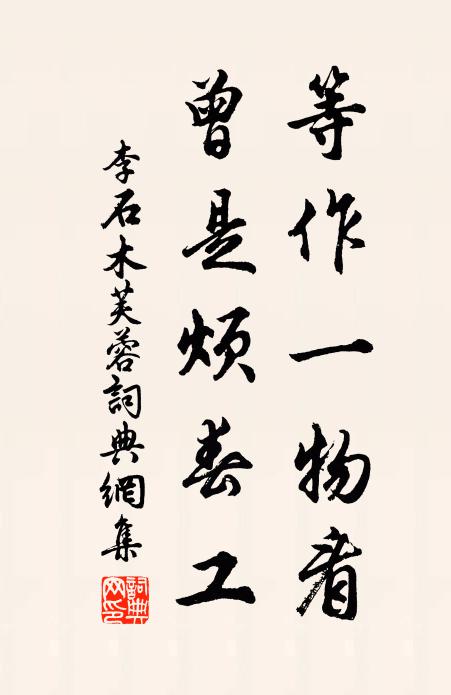 等作一物看
曾是煩春工
李石木芙蓉詞典網集
詞典網印